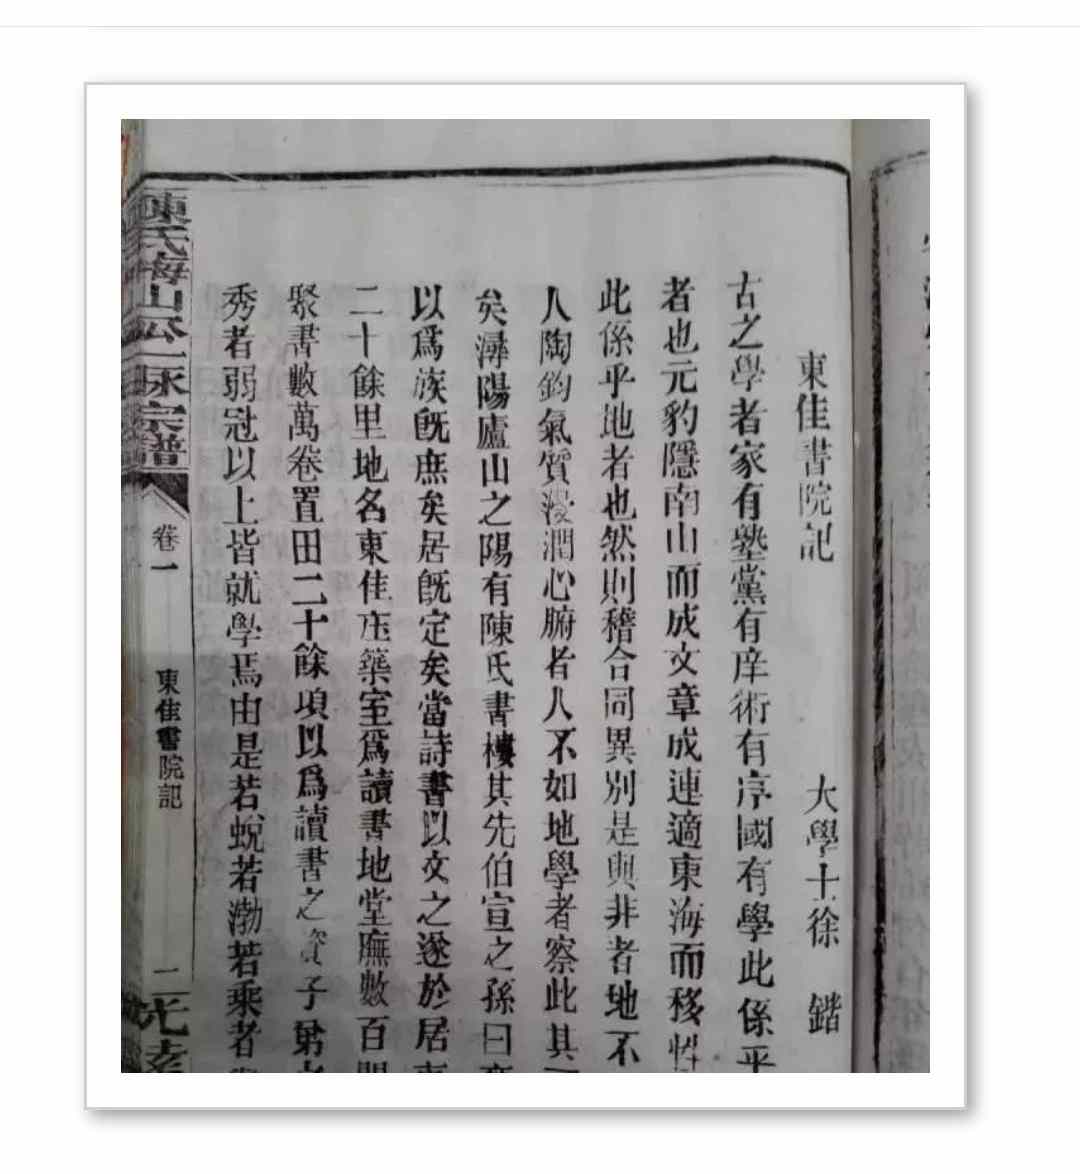 東佳書院記
大學士徐 鍇
古之學者家有塾黨有庠術有序國有學此係乎
者也元豹隱南山而成文章成連適東海而移性
此係乎地者也然則稽合同異別是與非者地不
人陶鈞氣質漫潤心腑者人不如地學者察此其
矣潯陽廬山之陽有陳氏書樓其先伯宣之孫曰
以爲族既庶矣居既定矣當詩書以文之遂於居
二十餘里地名東佳庄築室爲讀書地堂廡數百
聚書數萬卷置田二十餘頃以爲讀書之資子弟
秀者弱冠以上皆就學焉由是若蛻若渤若乘者
陳氏海山公一脉宗譜
卷一
東佳書院記
二
光